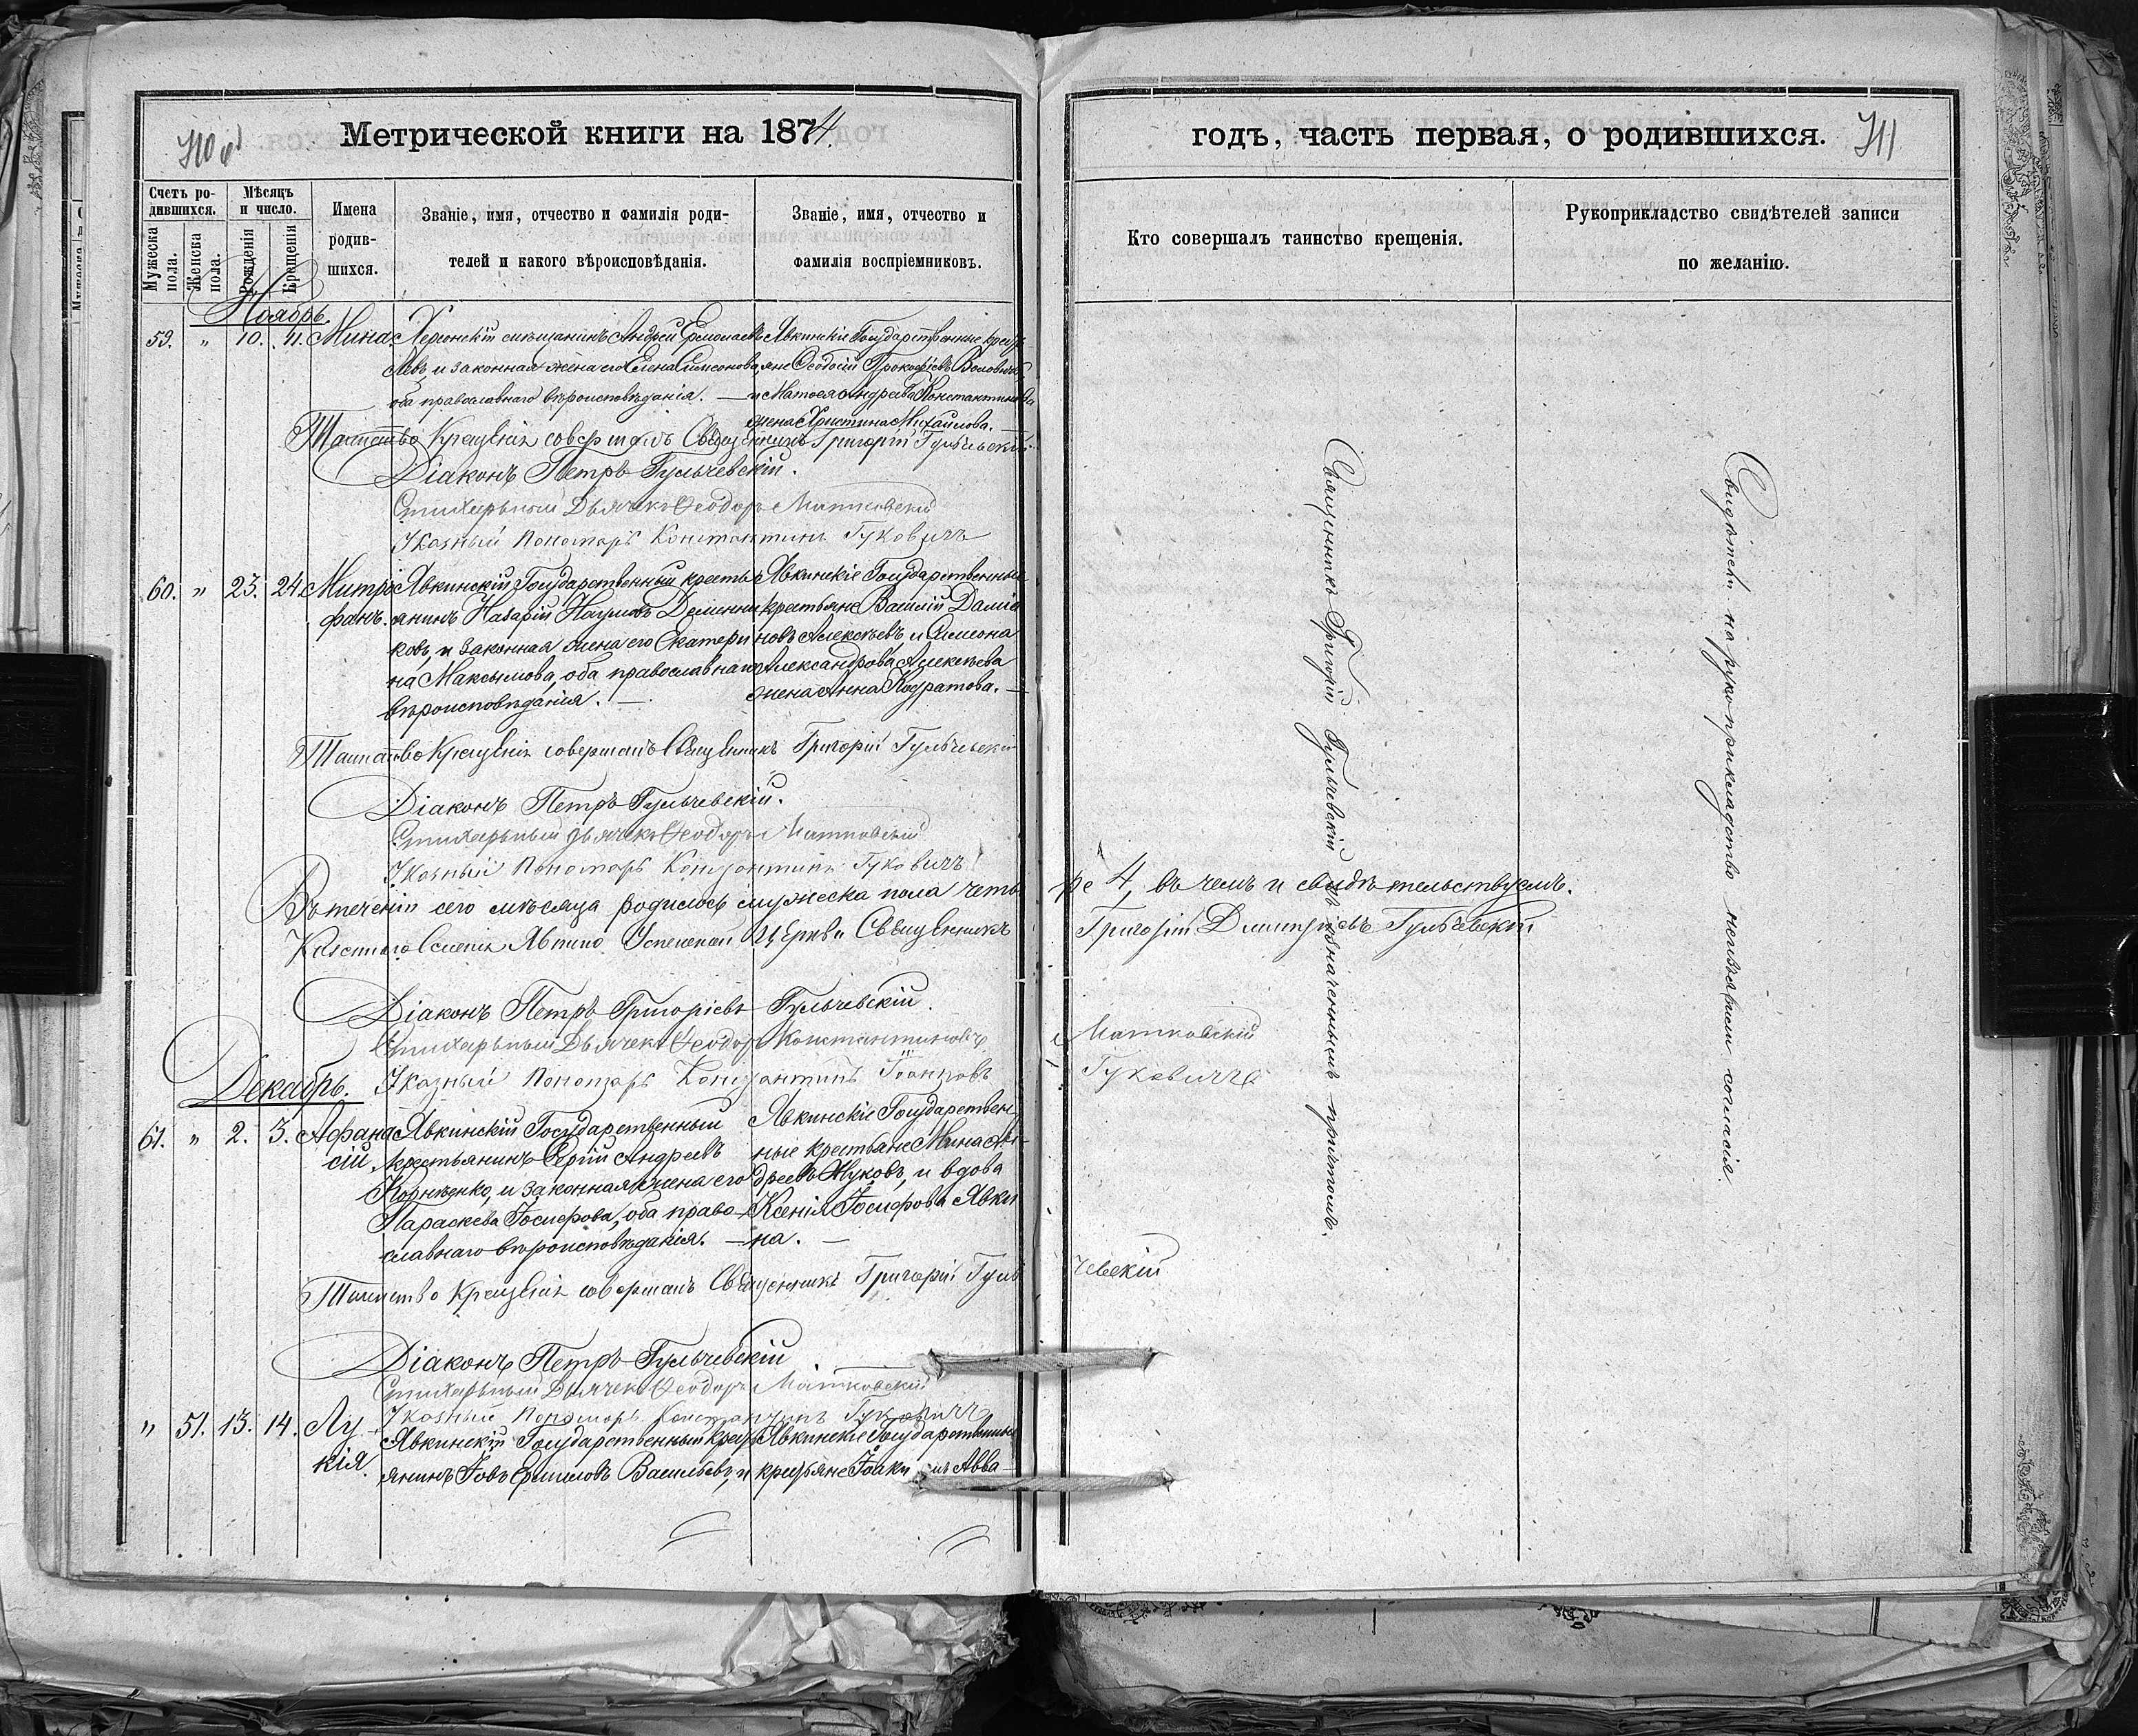 710 об
Метрической книги на 1874
годъ, часть первая, о родившихся.
711
Счетъ родившихся.
Мужеска пола.
Женска пола.
Мѣсяцъ и число.
Рожденія
Крещенія
Имена родив-
шихся.
Званіе, имя, отчество и фамилія роди-
телей и какого вѣроисповѣданія.
Званіе, имя, отчество и
фамилія воспріемниковъ.
Кто совершалъ таинство крещенія.
Рукоприкладство свидѣтелей записи
по желанію.
Ноябрь.
59. " 10. 11. Мина.
Херсонскій мѣщанинъ Андрей Ермолаевъ
и законная жена его Елена Симеонова,
оба православнаго вѣроисповѣданія. —
Явкинскіе Государственные крест
яне Ѳеодосій Прокофіевъ
и Матѳея Андреева Константинова
жена Христина Михайлова. —
Таинство Крещенія совершалъ Священникъ Григорій Гульчевскій
Діаконъ Петръ Гульчевскій.
Стихарьный Дьячекъ Ѳеодоръ Матковскій
Указный Пономарь Константинъ Гуковичъ
60. " 23. 24. Митро
фанъ.
Явкинскій Государственный кресть
янинъ Назарій Наумовъ Деменни
ковъ, и законная жена его Екатери
на Максимова, оба православнаго
вѣроисповѣданія. —
Явкинскіе Государственные
крестьяне Василій Даміа
новъ Алексѣевъ, и Симеона
Александрова Алексѣева
жена Анна Кодратова. —
Таинство Крещенія совершалъ Священникъ Григорій Гульчевскій
Діаконъ Петръ Гульчевскій.
Стихарьный Дьячекъ Ѳеодоръ Матковскій
Указный Пономарь Константинъ Гуковичъ
Въ теченіи сего мѣсяца родилось мужеска пола четы
ре 4, въ чемъ и свидѣтельствуемъ.
Казеннаго Селенія Явкино Успенской Церкви Священникъ
Григорій Димитріевъ Гульчевскій
Діаконъ Петръ Григоріевъ Гульчевскій.
Стихарьный Дьячекъ Ѳеодоръ Константиновъ
Матковскій
Указный Пономарь Константинъ Іоанновъ
Гуковичъ
Декабрь.
61. " 2. 3. Афана
сій.
Явкинскій Государственный
крестьянинъ Сергій Андреевъ
Корнѣенко, и законная жена его
Параскева Іосифова, оба право-
славнаго вѣроисповѣданія. —
Явкинскіе Государствен
ные крестьяне Мина Ан-
дреевъ Жуковъ, и вдова
Ксенія Іосифова Явки
на. —
Таинство Крещенія совершалъ Священникъ Григорій Гуль
чевскій
Діаконъ Петръ Гульчевскій.
Стихарьный Дьячекъ Ѳеодоръ Матковскій
Указный Пономарь Константинъ Гуковичъ
" 51. 13. 14. Лу-
кія.
Явкинскій Государственный крест
янинъ Іовъ Ермиловъ Васильевъ, и
Явкинскіе Государственные
крестьяне Іоакимъ Авва-
Священникъ Григорій Гульчевскій съ означеннымъ причтомъ.
Свидѣтели на рукоприкладство неизъявили согласія.